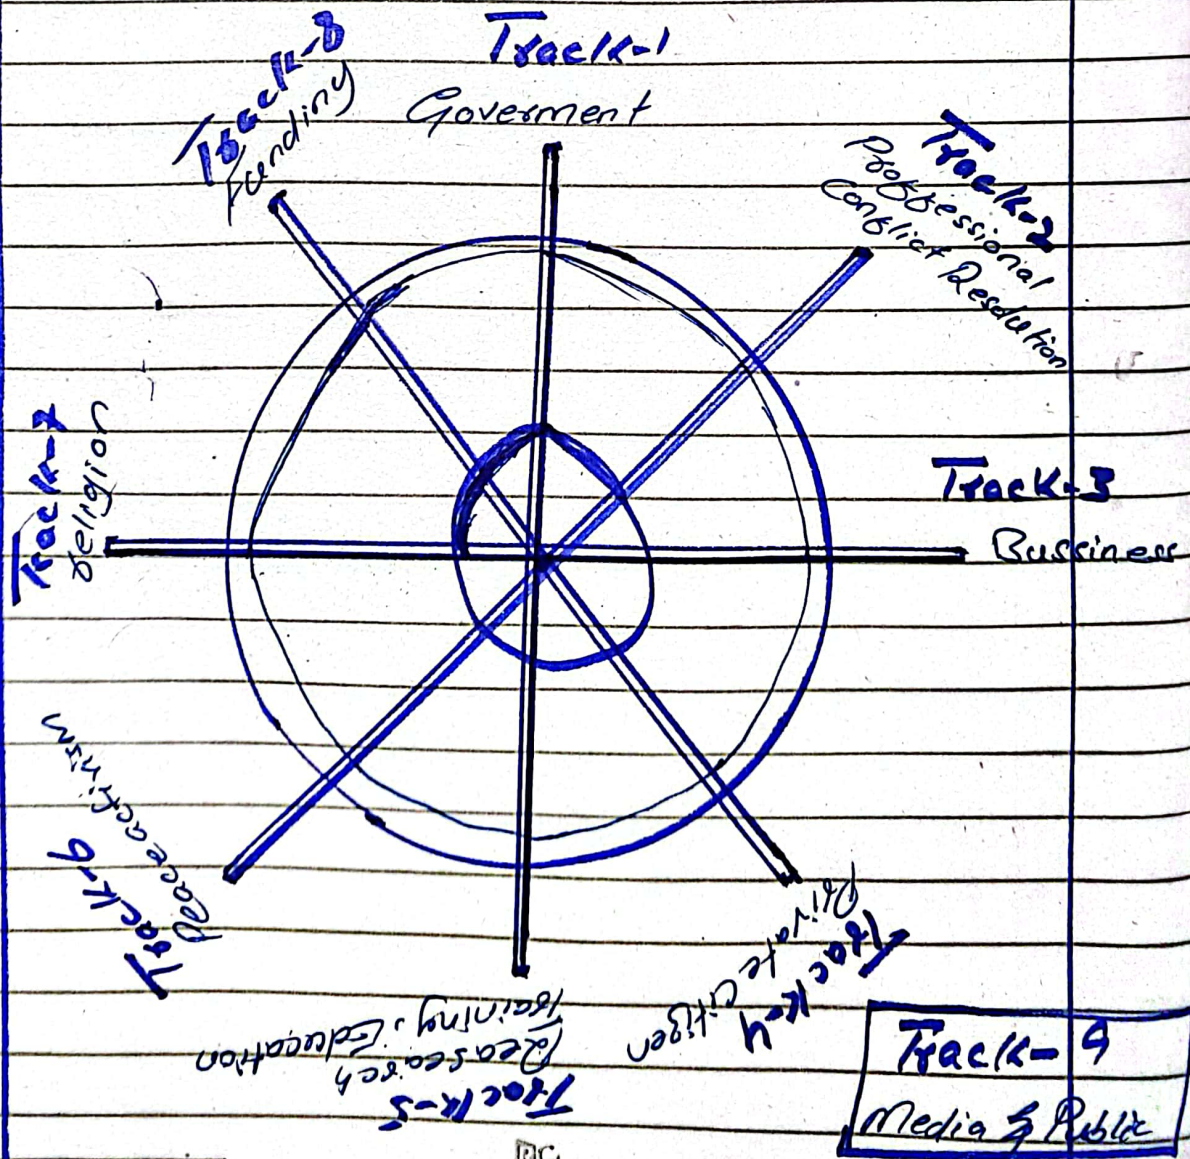 Track-1
Goverment
Track-2
Proffessional
Conflict Resolution
Track-3
Bussiness
Track-4
Private Citizen
Track-5
Reasearch
Training, Education
Track-6
Peace activism
Track-7
religion
Track-8
Funding
Track-9
Media & Public